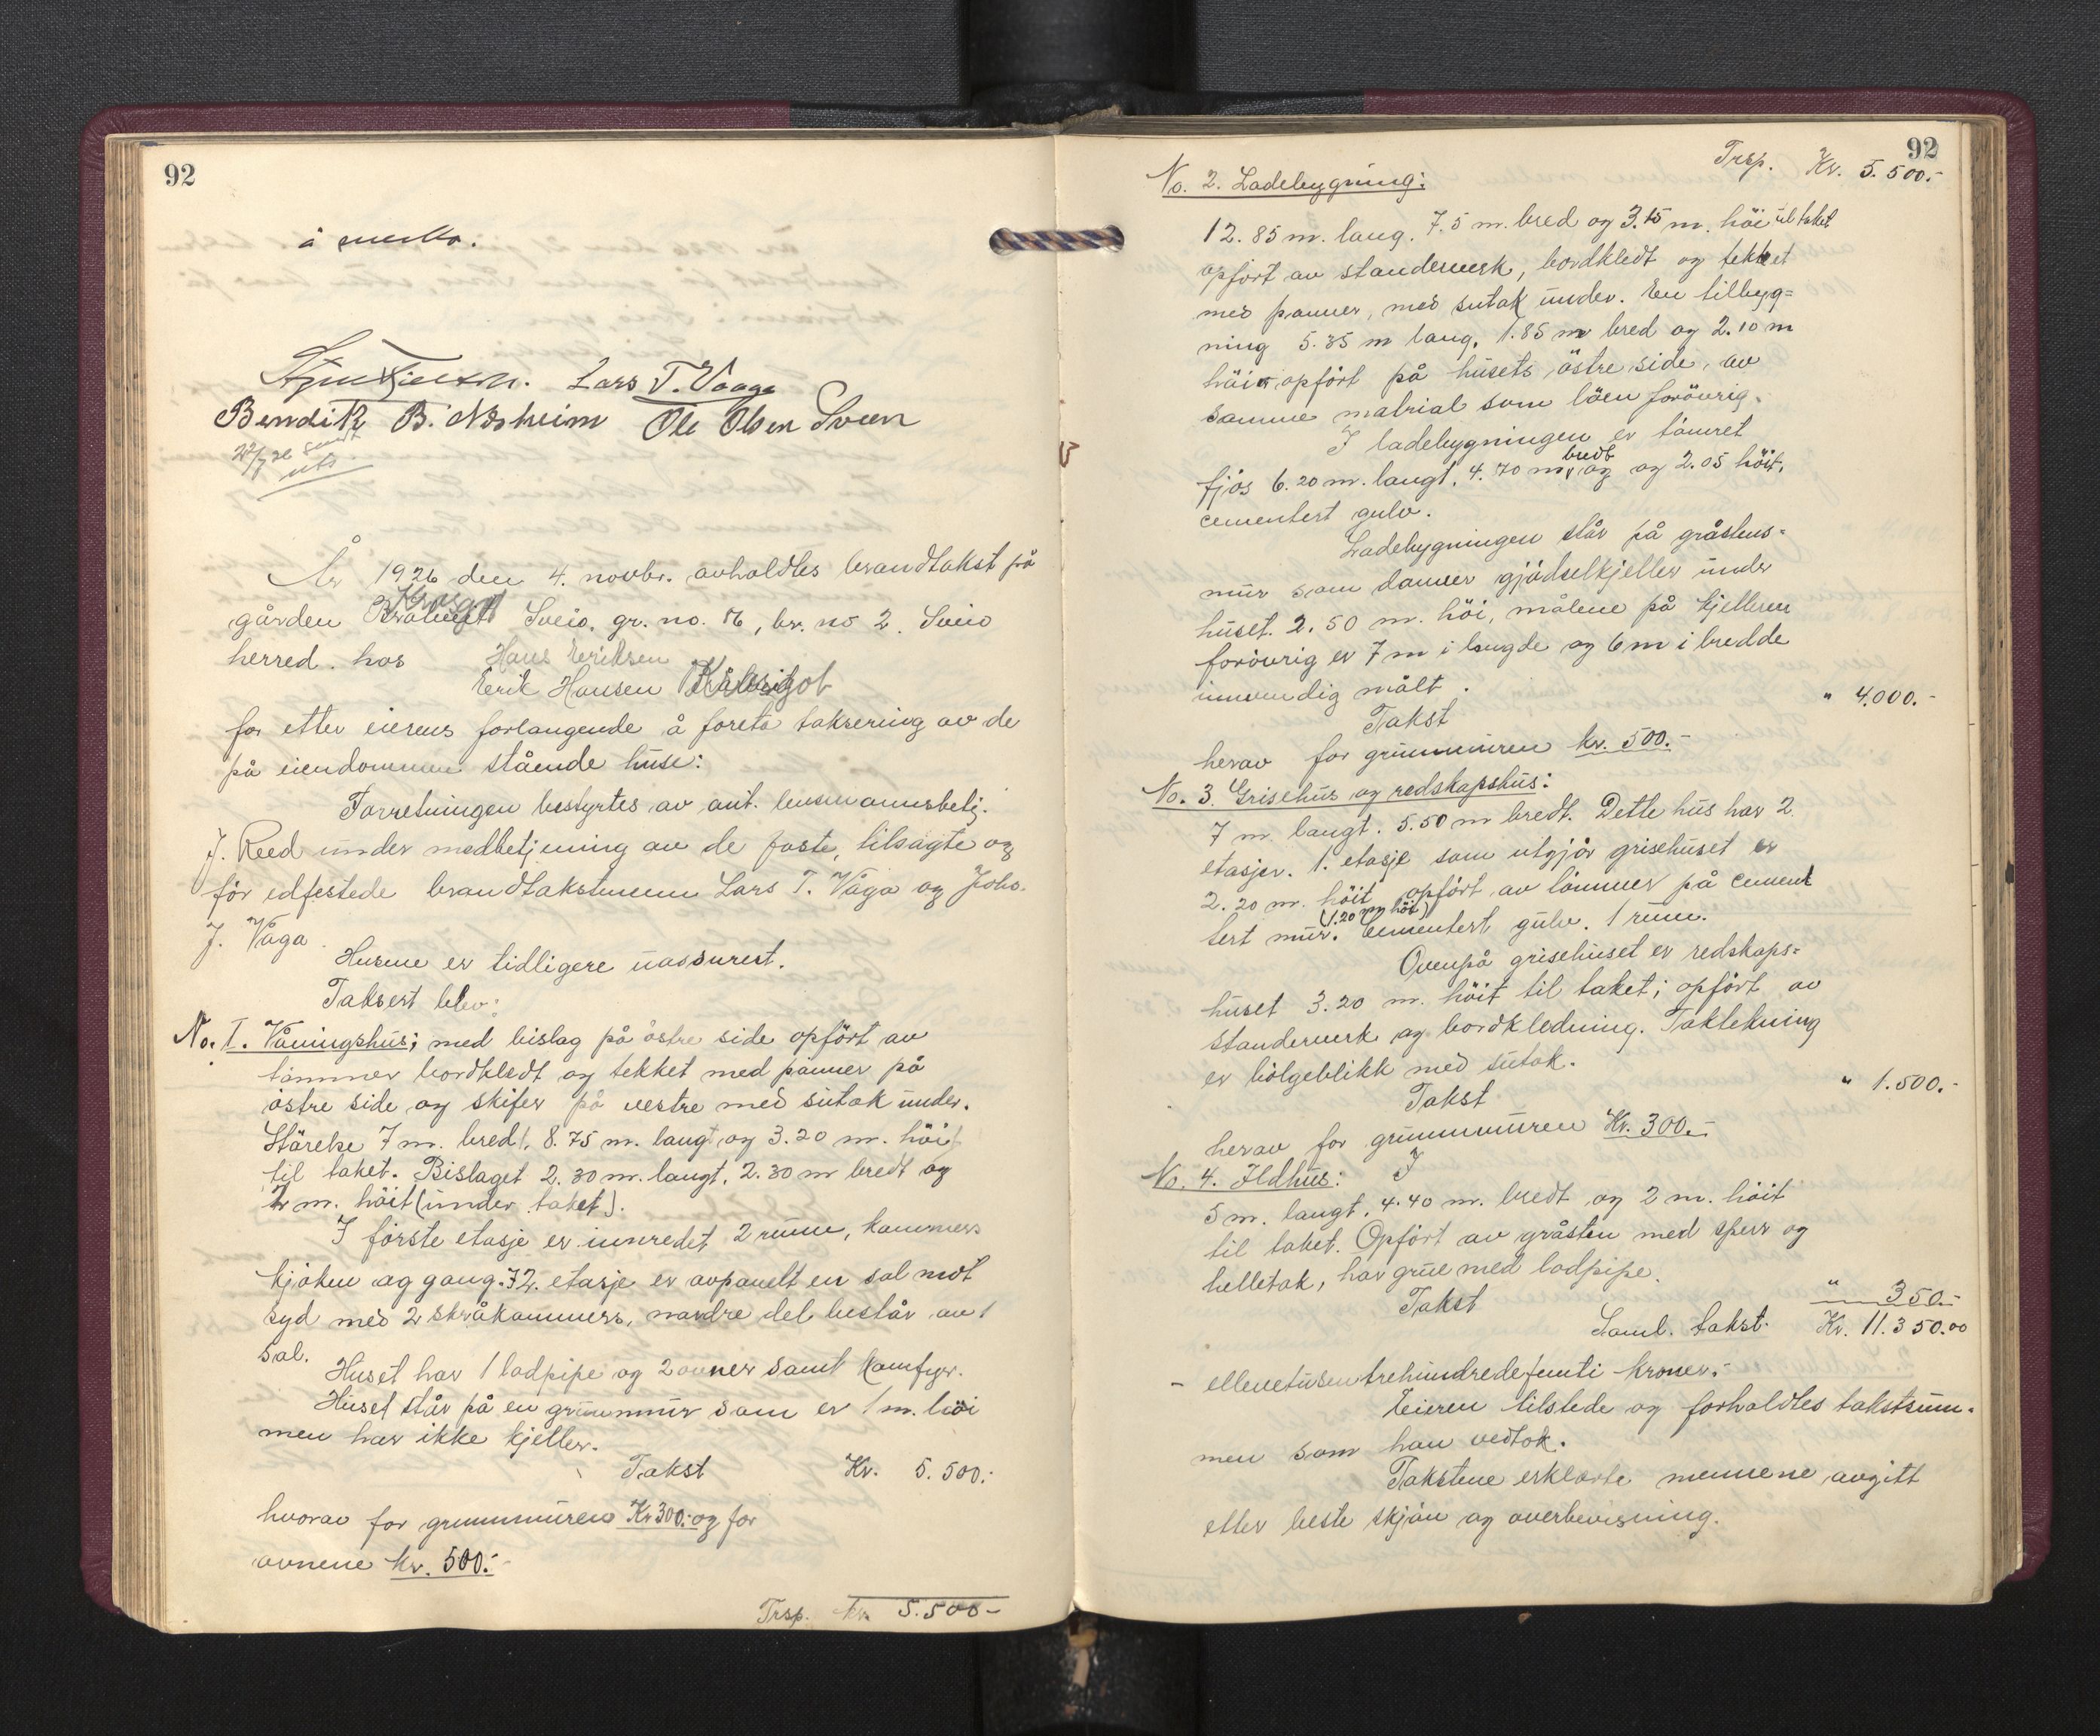 92
å merke.
Lars T. Vaage
Benditz B. Næsheim Ole Olsen Sveen
22/7 26 sendt
År 1926 den 4. novbr. avholdtes brandtakst på
gården Sveio, gr. no. 16, br. no 2. Sveio
herred. hos Hans Eriksen
Erik Hansen
for etter eierens forlangende å foreta taksering av de
på eiendommen stående huse:
Forretningen bestyrtes av ant. lensmannsbetj.
J. Reed under medbetjening av de faste, tilsagte og
før edfestede brandtakstmenn Lars T. Våga og Johs.
J. Våga.
Husene er tidligere uassurert.
Taksert blev:
No. I. Våningshus; med bislag på østre side opført av
tømmer bordkledt og tekket med panner på
østre side og skifer på vestre med sutak under.
Størelse 7 m. bredt, 8.75 m. langt og 3.20 m. höit
til taket. Bislaget 2.30 m. langt, 2.30 m bredt og
2 m. höit (under taket).
I förste etasje er innredet 2 rum, kammers
kjöken og gang. I 2. etasje er avpanelt en sal mot
syd med 2 skråkammers, nordre del består av 1
sal.
Huset har 1 lodpipe og 2 ovner samt komfyr.
Huset står på en grunnmur som er 1 m. höi
men har ikke kjeller.
Takst Kr. 5.500.-
hvorav for grunnmuren Kr 300.- og for
ovnene kr. 500.-
Trsp. kr. 5.500-
92
Trsp. Kr. 5.500.-
No. 2. Ladebygning:
12.85 m. lang. 7.5 m. bred og 3.15 m. höi til taket
opfört av standerverk, bordkledt og tekket
med panner, med sutak under. En tilbyg=
ning 5.35 m lang, 1.85 m bred og 2.10 m
höi er opfört på husets östre side, av
samme matrial som löen forövrig.
I ladebygningen er tömret
fjös 6.20 m. langt, 4.70 m. bredt og og 2.05 höit,
cementert gulv.
Ladebygningen står på gråstens=
mur som danner gjödselkjeller under
huset. 2.50 m. höi, målene på kjelleren
forövrig er 7 m i lengde og 6 m i bredde
innvendig målt.
Takst " 4.000.-
herav for grunnmuren kr. 500.-
No. 3. Grisehus og redskapshus:
7 m. langt. 5.50 m bredt. Dette hus har 2
etasjer. 1. etasje som utgjör grisehuset er
2.20 m. höit opfört av tömmer på cemen
tert mur. (1.20 m höi) Cementert gulv. 1 rum.
Ovenpå grisehuset er redskaps=
huset 3.20 m. höit til taket; opfört av
standerverk og bordkledning. Taktekning
er bölgeblikk med sutak.
Takst " 1.500.-
herav for grunnmuren Kr. 300.-
No. 4. Ildhus: I
5 m. langt, 4.40 m. bredt og 2 m. höit
til taket. Opfört av gråsten med sperr og
helletak, har grue med lodpipe.
Takst " 350.-
Saml. takst. Kr. 11.350.00
- ellevetusentrehundredefemti kroner.-
Eieren tilstede og forholdtes takstsum-
men som han vedtok.
Takstene erklærte mennene avgitt
etter beste skjön og overbevisning.